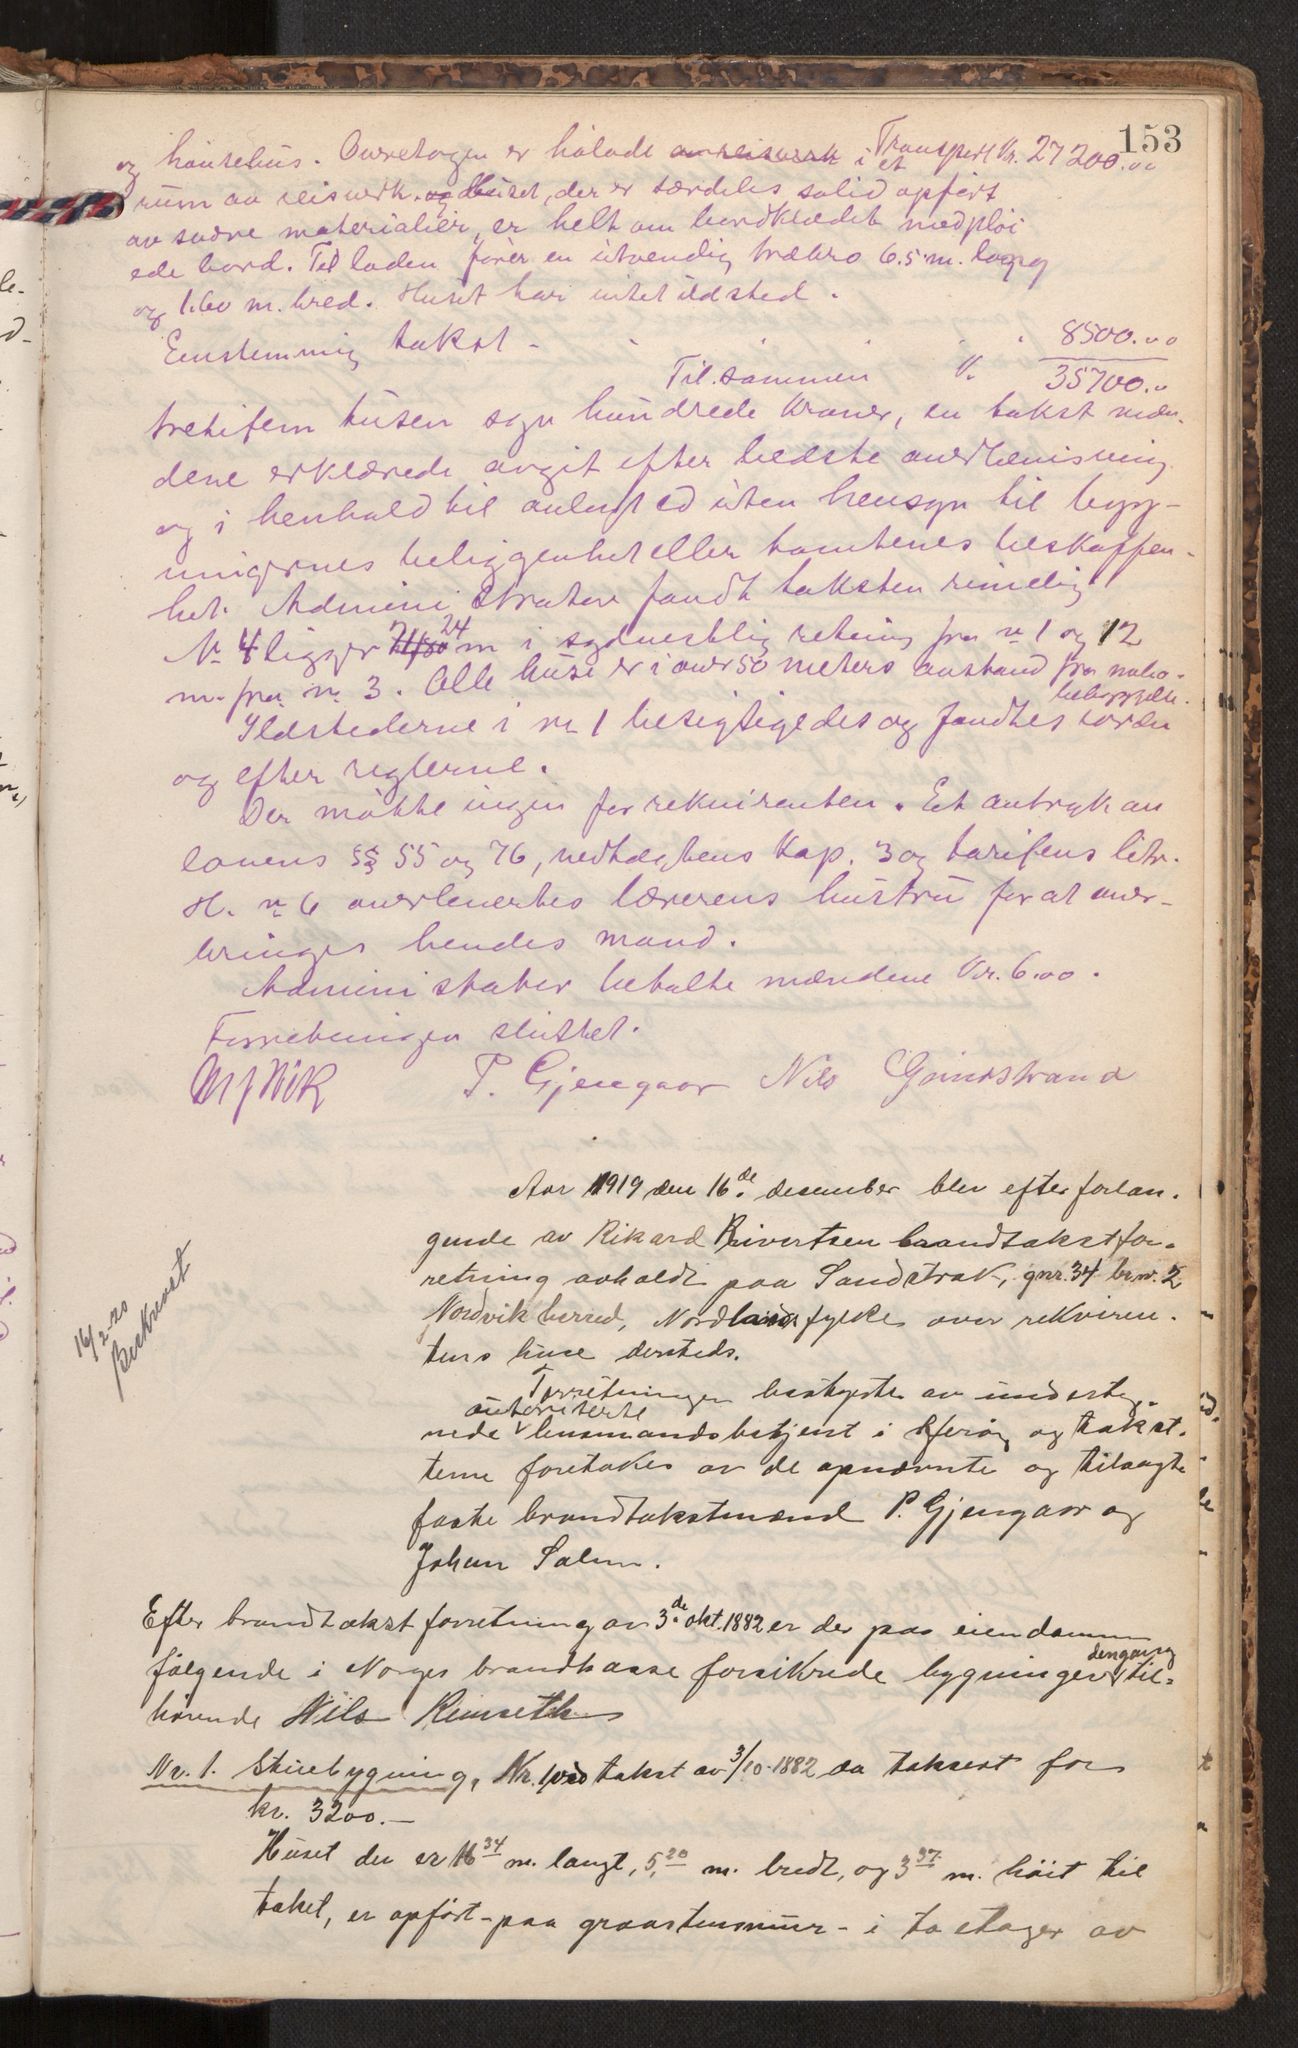 153
Transport Kr. 27200.00
og hønsehus. Överetagen er hölade i et
rum av reisverk. Huset, der er særdeles solid opført
av svære materialier, er helt om bordklædt med pløi
ede bord. Til laden fører en utvendig træbro 6.5 m. lang
og 1.60 m. bred. Huset har intet ildsted.
Enstemmig takst - 8500.00
Til sammen Kr. 35700.00
tretifem tusen syv hundrede kroner, en takst mæn-
dene erklærede avgit efter bedste overbevisning
og i henhold til avlagt ed uten hensyn til byg-
ningernes beliggenhet eller tomtenes beskaffen-
het. Administrator fandt taksten rimelig.
Nr 4 ligger 24 m i sydvestlig retning fra nr 1 og 12
m. fra nr 3. Alle huse er i over 50 meters avstand fra nabo-
bebyggelse.
Ildstederne i nr 1 besigtigedes og fandtes i orden
og efter reglerne.
Der møtte ingen for rekvirenten. Et avtryk av
lovens §§ 55 og 76, vedtægtens Kap. 3 og tarifens litr.
H. nr 6 overleverties lærerens hustru for at over-
bringes hendes mand.
Administrator betalte mændene Kr. 6.00.
Forretningen sluttet.
P. Gjengaar Nils Grindstrand
Aar 1919 den 16de desember blev efter forlan-
gende av Rikard Sivertsen brandtakstfor-
retning avholdt paa Sandstrak, gnr. 34 br.nr. 2
Nordvik herred, Nordlands fylke over rekviren-
tens huse dersteds.
Forretningen bestyrtes av underteg-
nede autoriserte lensmandsbetjent i Herøy og takst-
terne foretokes av de opnævnte og tilsagte
faste brandtakstmænd P. Gjengaar og
Johan Salm.
16/2-20
Bekræft
Efter brandtakstforretning av 3de okt. 1882 er der paa eiendommen
følgende i Norges brandkasse forsikrede bygninger dengang til-
hørende Nils Remseth
Nr. 1. Stuebygning, Nr. 1 ved takst av 3/10-1882 da taksert for
kr. 3200.—
Huset der er 16.34 m. langt, 5.20 m. bredt, og 3.37 m. høit til
taket, er opført - paa graastensmur - i to etager av